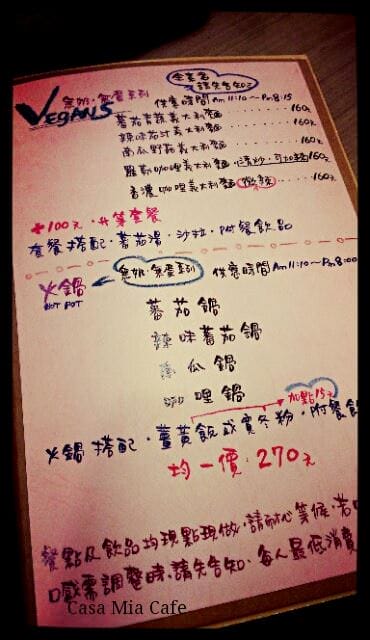 全素者
請先告知
VEGANS 無奶·無蛋系列 供應時間 Am 11:10~Pm 8:15
蕃茄蔬菜義大利麵 160元
辣味茄汁義大利麵 160元
南瓜野菇義大利麵 160元
羅勒咖哩義大利麵 160元
香濃咖哩義大利麵 微辣 160元
+100元·升等套餐
套餐搭配·蕃茄湯·沙拉·附餐飲品
火鍋 無奶·無蛋系列 供應時間 Am 11:10~Pm 8:00
HOT POT
蕃茄鍋
辣味蕃茄鍋
南瓜鍋
咖哩鍋
加點15元
火鍋搭配·薑黃飯或寬冬粉·附餐飲
均一價·270元
餐點及飲品均現點現做·請耐心等候·若
口感需調整時·請先告知·每人最低消費
Casa Mia Cafe